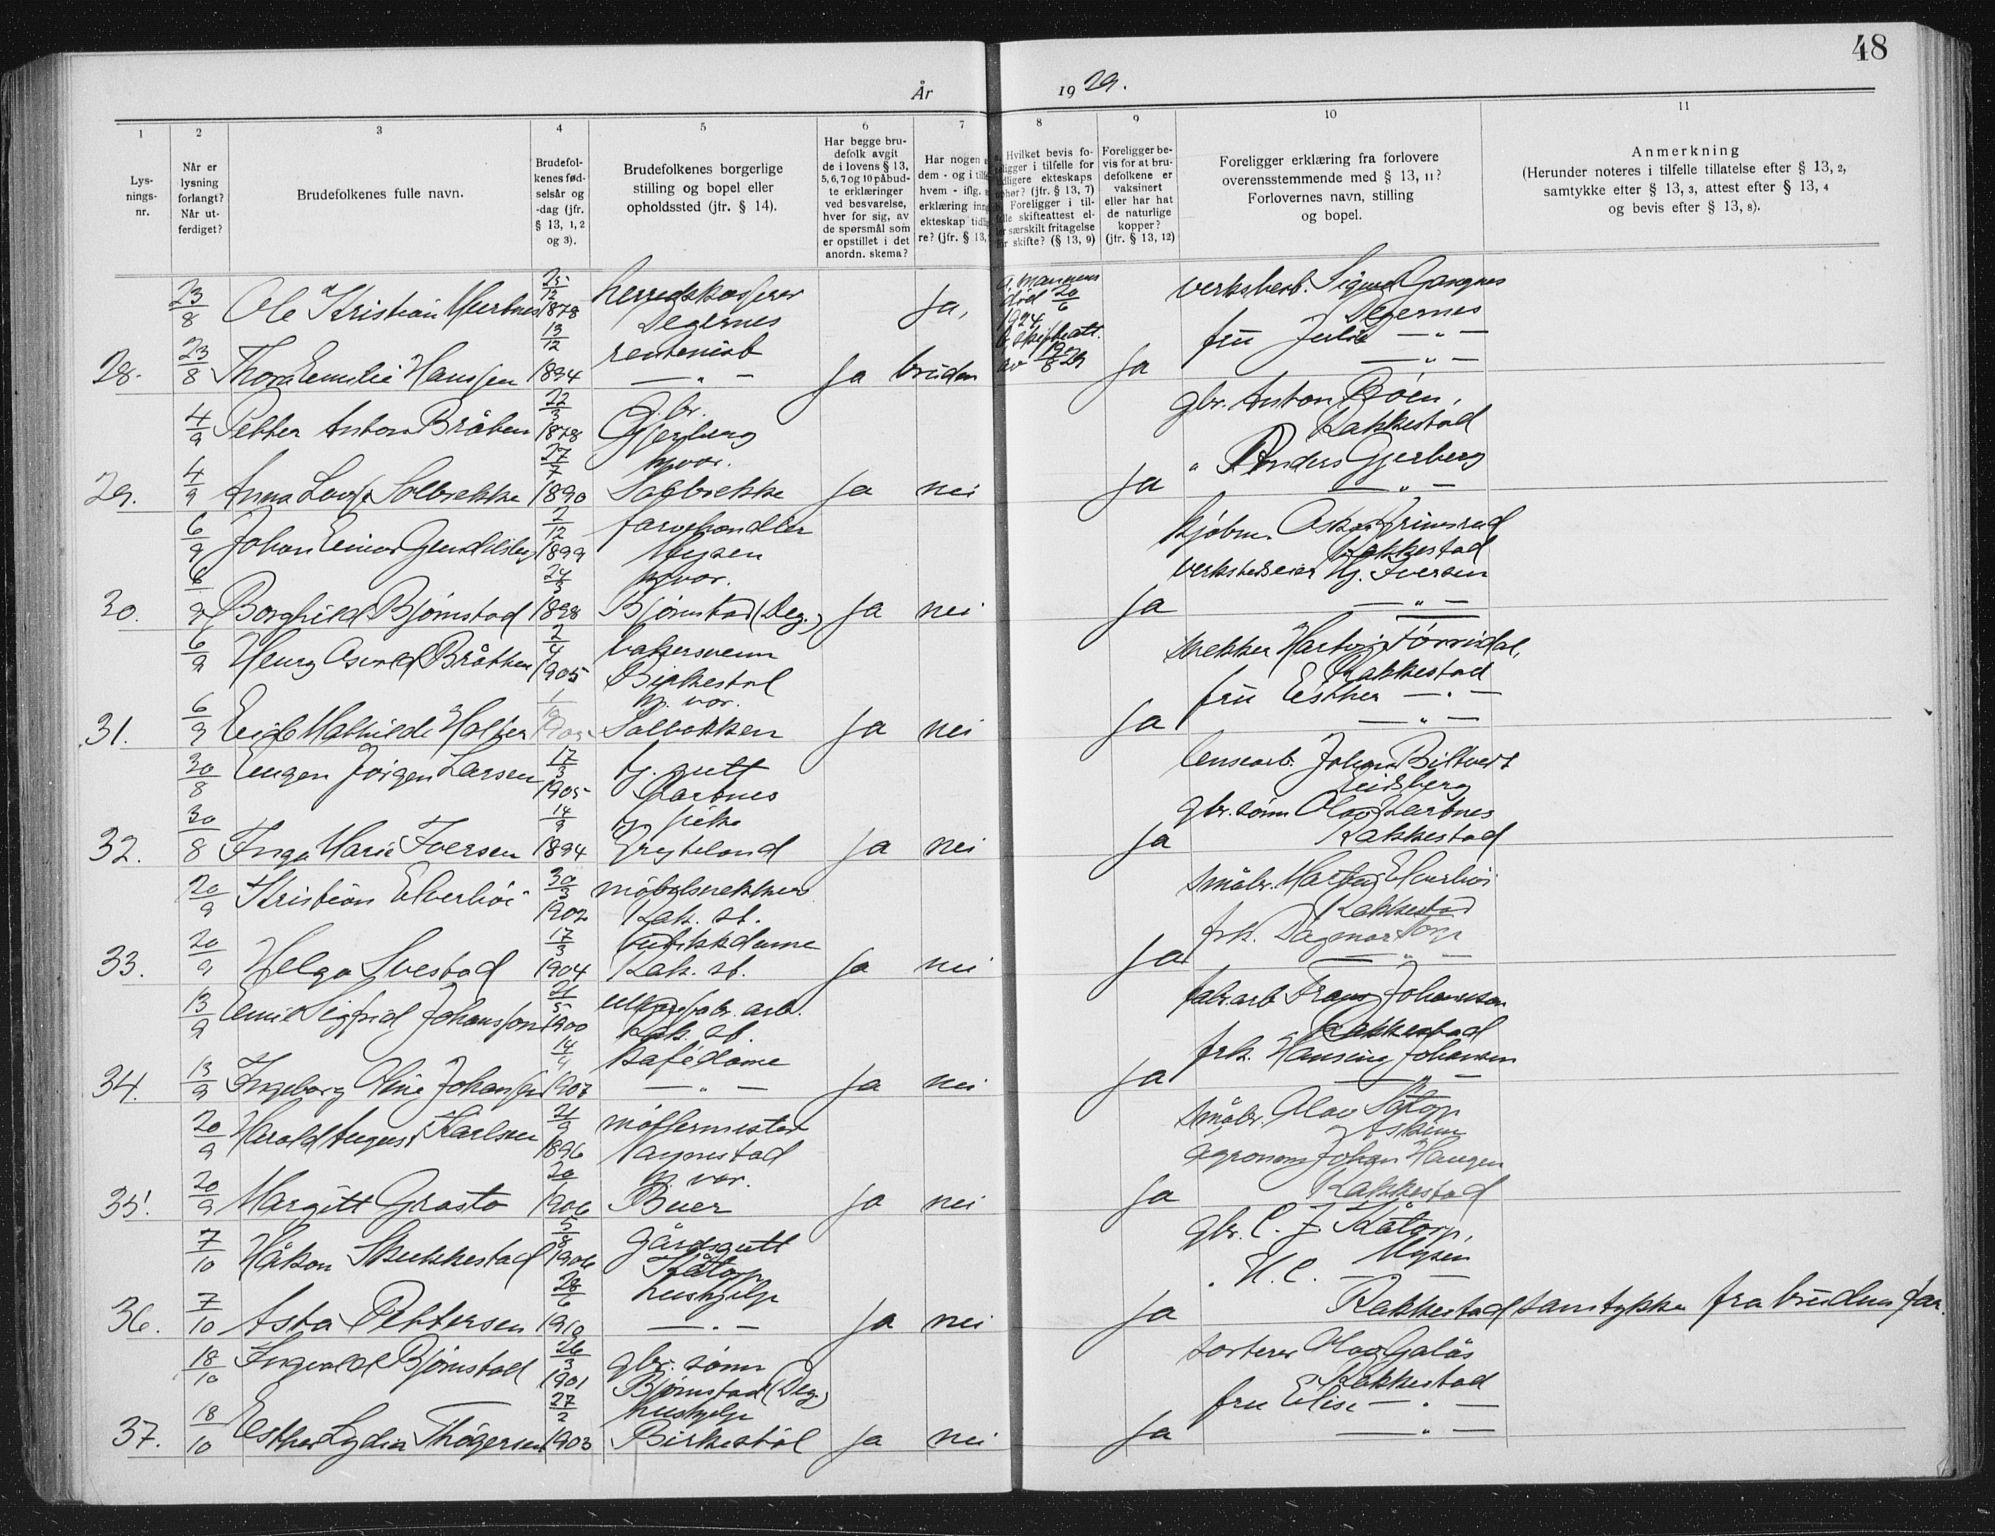 48
År 1929.
1 2 3 4 5 6 7 8 9 10 11
Lys-
nings-
nr.
Når er
lysning
forlangt?
Når ut-
ferdiget?
Brudefolkenes fulle navn.
Brudefol-
kenes fød-
selsår og
-dag (jfr.
§ 13, 1, 2
og 3).
Brudefolkenes borgerlige
stilling og bopel eller
opholdssted (jfr. § 14).
Har begge bru-
defolk avgit
de i lovens § 13,
5, 6, 7 og 10 påbud-
te erklæringer
ved besvarelse,
hver for sig, av
de spørsmål som
er opstillet i det
anordn. skema?
Har nogen
dem - og i
hvem - iflg.
erklæring
ekteskap
re? (jfr. § 13,
Hvilket bevis fo-
religger i tilfelle for
tidligere ekteskaps
ophør? (jfr. § 13, 7)
Foreligger i til-
felle skifteattest el-
ler særskilt fritagelse
for skifte? (§ 13, 9)
Foreligger be-
vis for at bru-
defolkene er
vaksinert
eller har hat
de naturlige
kopper?
(jfr. § 13, 12)
Foreligger erklæring fra forlovere
overensstemmende med § 13, 11?
Forlovernes navn, stilling
og bopel.
Anmerkning
(Herunder noteres i tilfelle tillatelse efter § 13, 2,
samtykke efter § 13, 3, attest efter § 13, 4
og bevis efter § 13, 8).
23/8 Ole Kristian 25/12 1878 herredskasserer Degernes Ja, a. mannens død 20/6 1924 Sigurd Gangnes Degernes
28. 23/8 Thora Emilie Hanssen 13/12 1894 rentenist — " — Ja bruden b. skifteatt. av 19/8 29 Ja fru Julie — " —
— " —
4/9 Petter Anton Bråten 22/3 1878 Gbr. Gjerberg gbr. Anton Böen, Rakkestad
29. 4/9 Anna Lovise Solbrekke 27/7 1890 hjvær. Solbrekke Ja nei Ja " Anders Gjerberg
— " —
6/9 Johan Einar 2/12 1899 farvehandler Mysen kjøbm. Oskar Grimsrud Rakkestad
30. 6/9 Borghild Bjørnstad 24/3 1898 hjvær. Bjørnstad (Deg.) Ja nei Ja verkstedseier Hj. Iversen
— " —
6/9 Henry Asvald Bråthen 2/4 1905 bakersvenn Birkestøl snekker Rakkestad
31. 6/9 Mathilde Holter hj. vær. Solbakken Ja nei Ja fru Esther — " —
— " —
30/8 Eugen Jörgen Larsen 17/3 1905 tj. gutt Kartnes Johan Biltvedt Eidsberg
32. 30/8 Inga Marie Iversen 14/9 1894 tj. pike Ja nei Ja gbr. sönn Olav Kartnes Rakkestad
20/9 Kristian Elverhöi 30/3 1902 möbelsnekker Rak. st. småbr. Elverhöi Rakkestad
33. 20/9 Helga Svestad 17/3 1904 butikkdame Rak. st. Ja nei Ja frk. Dagmar Torp
— " —
13/9 Emil Sigfrid Johansson 21/5 1900 Rak. st. fabr.arb. Frans Johansson Rakkestad
34. 13/9 Ingeborg Johansen 1907 kafédame — " — Ja nei Ja frk. Hansine Johansen
— " —
20/9 Harald August Karlsen 21/9 1896 småbr. Olav Askim
35. 20/9 Margitt Grastø 1906 hj. vær. Buer Ja nei Ja agronom Johan Haugen Rakkestad
7/10 Håkon Skukkestad 5/8 1906 gårdsgutt Kåtorp gbr. C. J. Kåtorp, Mysen
36. 7/10 Asta Pettersen 28/6 1910 hushjelp — " — Ja nei Ja " H. C. — " — Rakkestad samtykke fra brudens far.
18/10 Ingvald Bjørnstad 26/3 1901 gbr. sönn Bjørnstad (Deg.) sorterer Olav Galås Rakkestad
37. 18/10 Esther Lydia Thögersen 27/2 1903 hushjelp Birkestöl Ja nei Ja fru Elise — " —
— " —